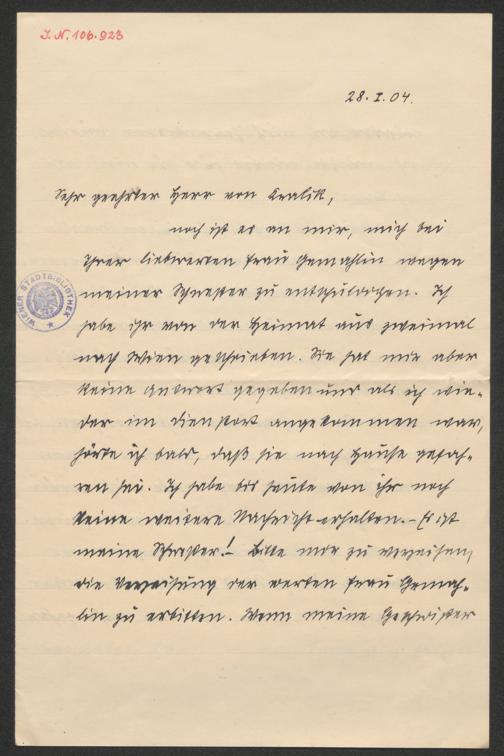 I. N. 106.923
28. I. 04.
Sehr geehrter Herr von Kralik,
noch ist es an mir, mich bei
Ihrer liebwerten Frau Gemahlin wegen
meiner Schwester zu entschuldigen. Ich
habe ihr von der Heimat aus zweimal
nach Wien geschrieben. Sie hat mir aber
keine Antwort gegeben und als ich wie-
der im Dienstort angekommen war,
hörte ich bald, daß sie nach Hause gefah-
ren sei. Ich habe bis heute von ihr noch
keine weitere Nachricht erhalten. – Es ist
meine Schwester! Bitte mir zu verzeihen,
die Verzeihung der werten Frau Gemah-
lin zu erbitten. Wenn meine Geschwister
WIENER STADTBIBLIOTHEK